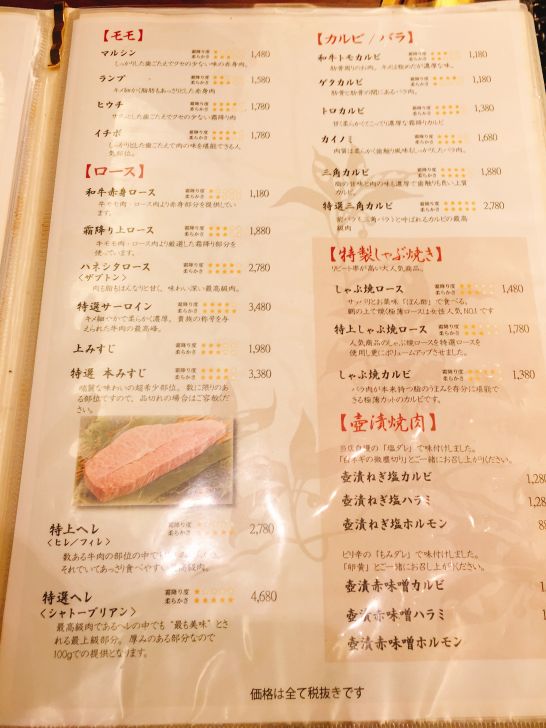 【モモ】
マルシン 霜降り度 柔らかさ 1,480
しっかりした歯ごたえでクセの少ない味の赤身肉。
ランプ 霜降り度 柔らかさ 1,580
キメ細かく脂肪もあっさりした赤身肉
ヒウチ 霜降り度 柔らかさ 1,780
サクッとした歯ごたえでクセの少ない霜降り肉
イチボ 霜降り度 柔らかさ 1,780
しっかりした歯ごたえで肉の味を堪能できる人
気部位。
【ロース】
和牛赤身ロース 霜降り度 柔らかさ 1,180
牛モモ肉・ロース肉より赤身部分を提供してい
ます。
霜降り上ロース 霜降り度 柔らかさ 1,880
牛モモ肉・ロース肉より厳選した霜降り部分を
使っています。
ハネシタロース 霜降り度 柔らかさ 2,780
〈ザブトン〉
肉も脂もほんなりと甘く、味わい深い最高級肉。
特選サーロイン 霜降り度 柔らかさ 3,480
キメ細やかで柔らかく濃厚。貴族の称号を与
えられた牛肉の最高峰。
上みすじ 霜降り度 柔らかさ 1,980
特選 本みすじ 霜降り度 柔らかさ 3,380
濃質な味わいの超希少部位。数に限りのあ
る部位ですので、品切れの場合はご容赦くだ
さい。
特上ヘレ 霜降り度 柔らかさ 2,780
〈ヒレ/フィレ〉
数ある牛肉の部位の中で
それでいてあっさり食べやすい 高級肉。
特選ヘレ 霜降り度 柔らかさ 4,680
〈シャトーブリアン〉
最高級肉であるヘレの中でも“最も美味”とさ
れる最上級部分。厚みのある部分なので
100gでの提供となります。
【カルビ/バラ】
和牛トモカルビ 霜降り度 柔らかさ 1,180
肋骨周りのお肉。キメは粗めだが濃厚な味。
ゲタカルビ 霜降り度 柔らかさ 1,180
肋骨と肋骨の間にあるバラ肉。
トロカルビ 霜降り度 柔らかさ 1,380
甘く柔らかくてこってり濃厚な霜降りカルビ
カイノミ 霜降り度 柔らかさ 1,680
肉質は柔らかく歯触り風味もしっかりしたバラ肉。
三角カルビ 霜降り度 柔らかさ 1,880
脂の旨味と肉の味も濃厚で歯触りも良い上質
カルビ
特選三角カルビ 霜降り度 柔らかさ 2,780
前バラ、三角バラと呼ばれるカルビの最高
級肉
【特製しゃぶ焼き】
リピート率が高い大人気商品。
しゃぶ焼ロース 霜降り度 柔らかさ 1,480
サッパリとお薬味「ぽん酢」で食べる。
網の上で焼く極薄ロースは女性人気NO.1です
特上しゃぶ焼ロース 霜降り度 柔らかさ 1,780
人気商品のしゃぶ焼ロースを特選ロースを
使用し更にボリュームアップさせました。
しゃぶ焼カルビ 霜降り度 柔らかさ 1,380
バラ肉が本来持つ脂のうまみを存分に堪能で
きる極薄カットのカルビです。
【壺漬焼肉】
当店自慢の「塩ダレ」で味付けしました。
「白ネギの微塵切り」とご一緒にお召し上がりください。
壺漬ねぎ塩カルビ
壺漬ねぎ塩ハラミ
壺漬ねぎ塩ホルモン
ピリ辛の「もみダレ」で味付けしました。
「卵黄」とご一緒にお召し上がりください。
壺漬赤味噌カルビ
壺漬赤味噌ハラミ
壺漬赤味噌ホルモン
価格は全て税抜きです